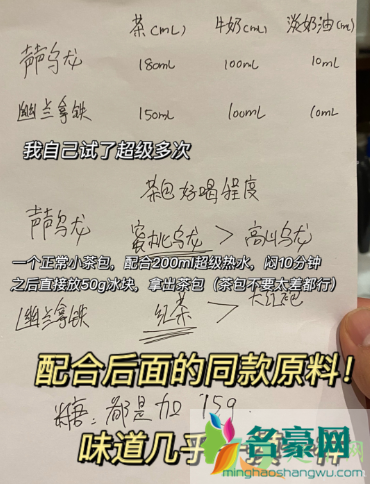 茶(mL) 牛奶(mL) 淡奶油(mL)
声声乌龙 180mL 100mL 10mL
幽兰拿铁 150mL 100mL 10mL
我自己试了超级多次
茶包好喝程度
声声乌龙 蜜桃乌龙 > 高山乌龙
一个正常小茶包，配合200ml超级热水，闷10分钟
之后直接放50g冰块，拿出茶包（茶包不要太差都行）
幽兰拿铁 红茶 > 大红袍
配合后面的同款原料！
糖：都是加 15g
味道几乎一
名豪网
minghaoshangwu.com